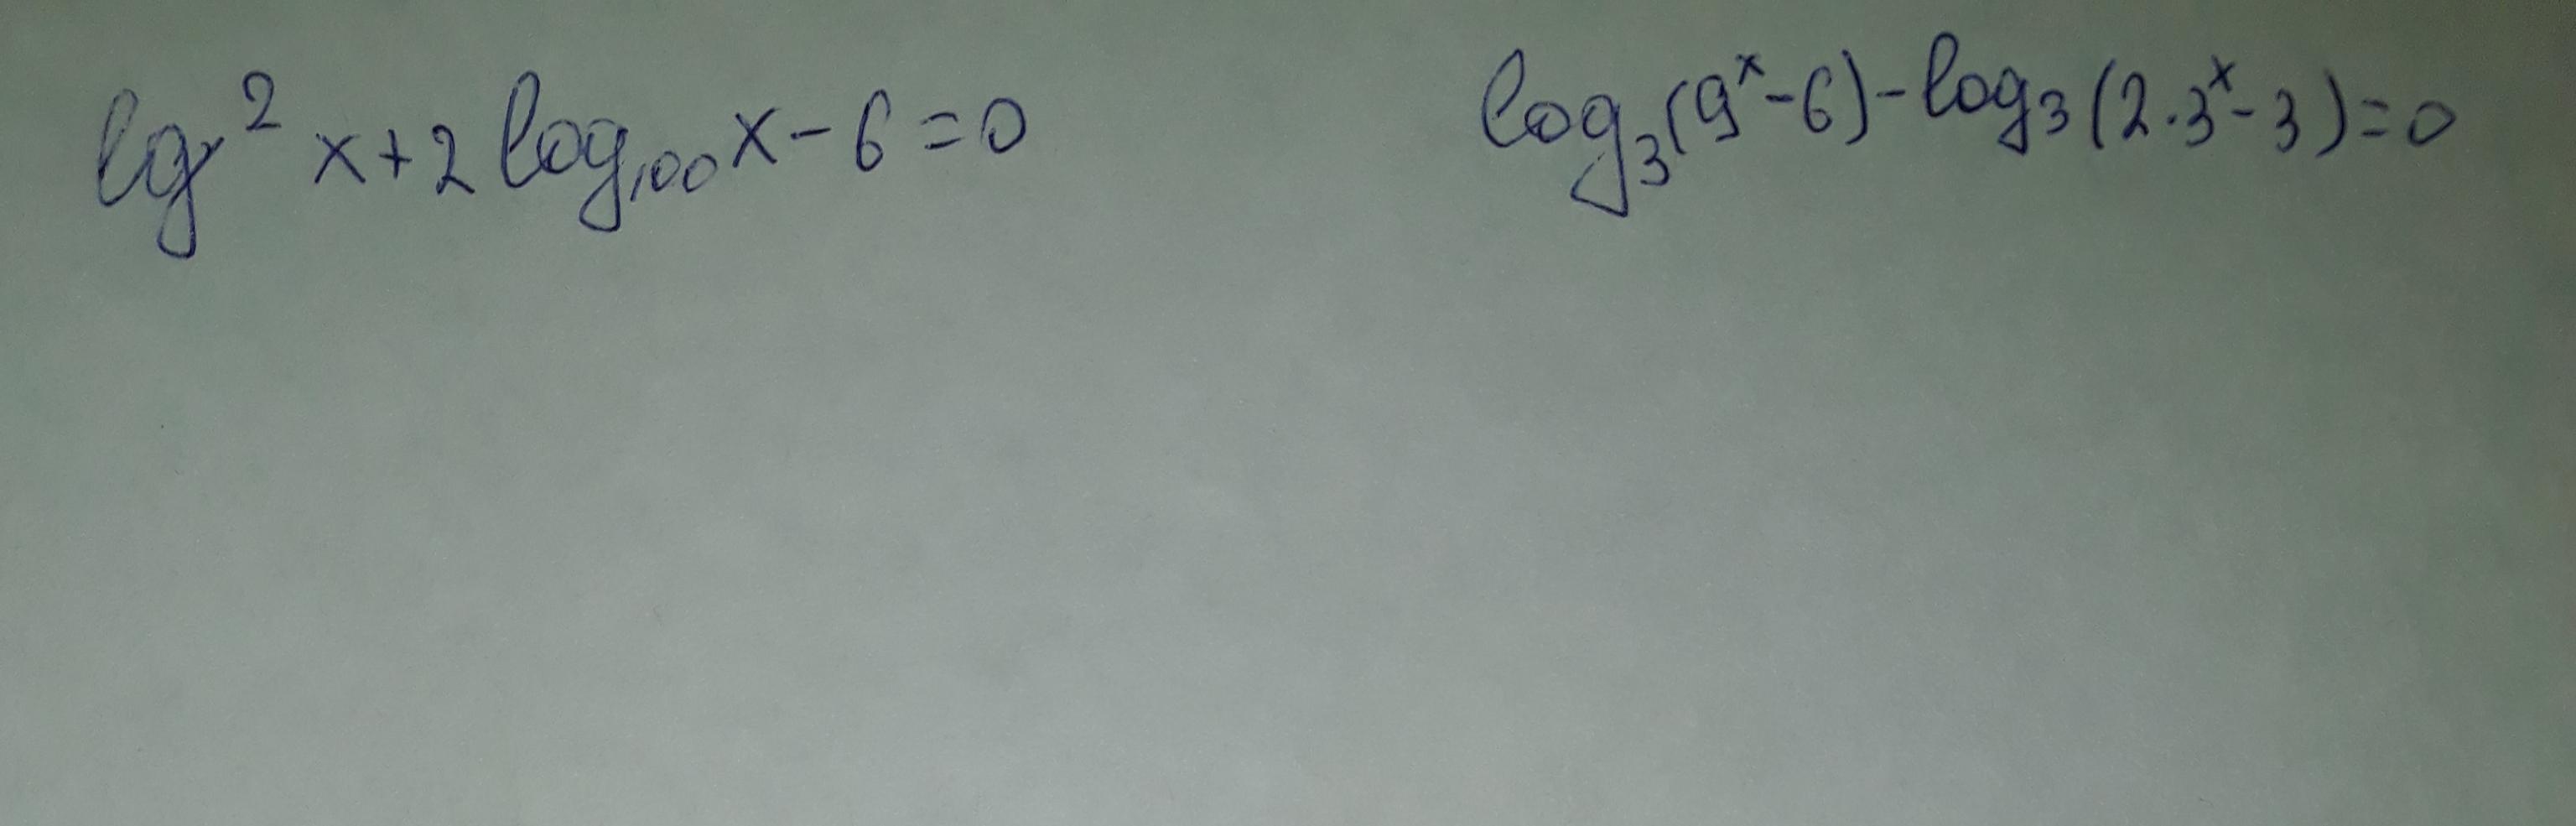 lg² x+2 log₁₀₀ x-6=0
log₃(9ˣ-6)-log₃(2·3ˣ-3)=0